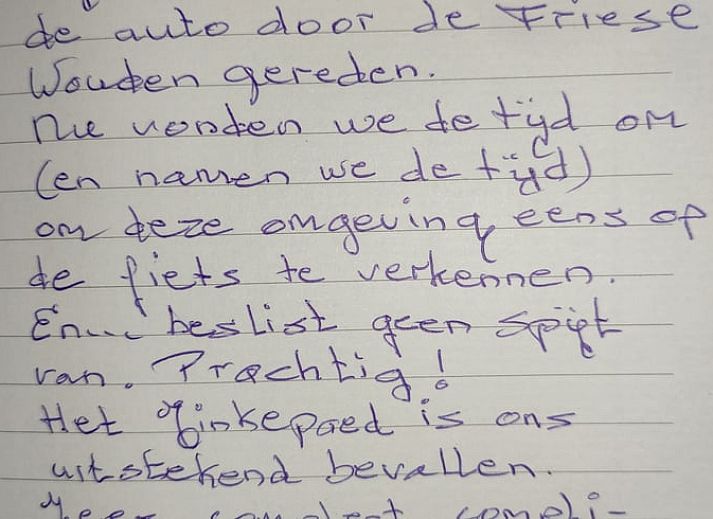 de auto door de Friese
Wouden gereden.
Nu vonden we de tijd om
(en namen we de tijd)
om deze omgeving eens op
de fiets te verkennen.
En... beslist geen spijt
van. Prachtig!
Het Ginkepaed is ons
uitstekend bevallen.